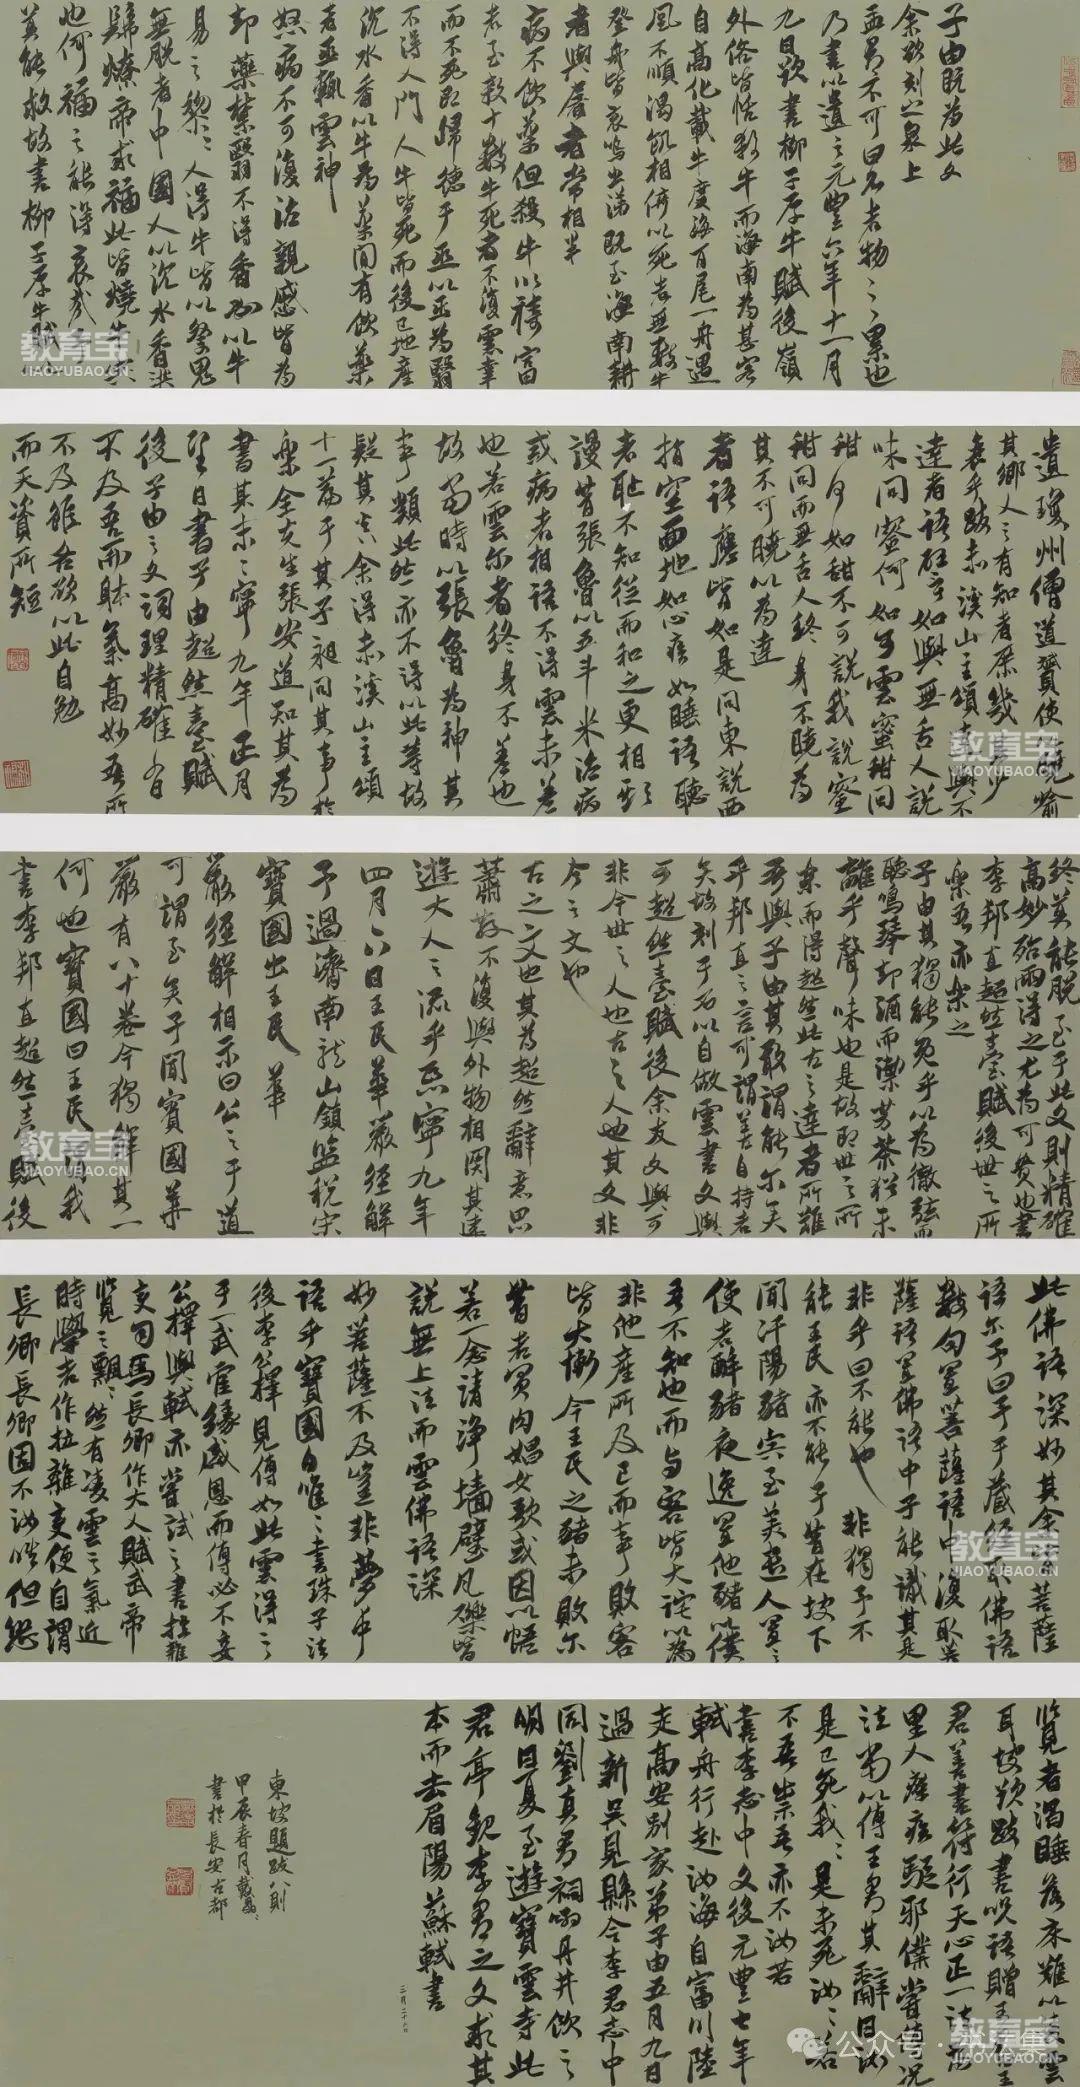 子由既為此文
余欲刻之泉上
孟君不可曰名者物之累也
乃書以遺之元豐六年十一月
九日題書柳子厚牛賦後嶺
外俗皆恬殺牛而海南為甚客
自高化載牛度海百尾一舟遇
風不順渴飢相倚以死者無數牛
登舟皆哀鳴出涕既至海南耕
者與屠者常相半
病不飲藥但殺牛以禱富
者至數十數牛死者不復雲幸
而不死即歸德于巫以巫為醫
不得人門人牛皆死而後已地產
沉水香以牛為藥間有飲藥
者巫輒雲神
怒病不可復治親慼皆為
卻藥禁醫不得香必以牛
易之黎黎人得牛皆以祭鬼
無脫者中國人以沉水香洪
歸燎帝求福此皆燒牛肉
也何福之能得哀哉予
莫能救故書柳子厚牛賦以
遺瓊州僧道贇使曉喻
其鄉人之有知者庶幾其少
衰乎跋赤溪山主頌
達者語聾 如與無舌人說
味問蜜何如可雲蜜甜問
甜何如甜不可說我說蜜
甜問而無舌人終身不曉為
其不可曉以為達
者語應皆如是問東說西
指空面地如心疾如睡語聽
者恥不知從而和之更相欺
謾昔張魯以五斗米治病
或病者相語不得雲未差
也若雲尔者終身不差也
故當時以張魯為神其
事類此然亦不得以此等故
疑其真余得赤溪山主頌
十一篇于其子昶問其事於
樂全先生張安道知其為
書其末熙寧九年正月
望日書子由超然臺賦
後子由之文詞理精確有
不及吾而體氣高妙吾所
不及雖各欲以此自勉
而天資所短
終莫能脫至于此文則精確
高妙殆兩得之尤為可貴也書
李邦直超然臺賦後世之所
樂吾亦樂之
子由其獨能免乎以為徹弦而
聽鳴琴卻酒而漱芳茶猶未
離乎聲味也是故即世之所
樂而得超然此古之達者所難
吾與子由其敢謂能尔矣
乎邦直之言可謂善自持者
矣故刻于石以自儆雲書文與
可超然臺賦後余友文與可
非今世之人也古之人也其文非
今之文也
古之文也其為超然辭意思
蕭散不復與外物相關其遠
遊大人之流乎熙寧九年
四月六日王氏華嚴經解
予過濟南龍山鎮監稅宋
寶國出王氏華
嚴經解相示曰公之于道
可謂至矣予聞寶國華
嚴有八十卷今獨解其一
何也寶國曰王氏謂我
書李邦直超然臺賦後
此佛語深妙其余皆菩薩
語尔予曰予于藏經取佛語
數句置菩薩語中復取菩
薩語置佛語中子能識其是
非乎曰不能也非獨子不
能王氏亦不能予昔在坡下
聞汧陽豬肉至美遣人置之
使者醉豬夜逸置他豬以償
吾不知也而与客皆大詫以為
非他產所及已而事敗客
皆大慚今王氏之豬未敗尔
昔者買肉娼女歌或因以悟
若一念清淨墻壁瓦礫皆
說無上法而雲佛語深
妙菩薩不及豈非夢中
語乎寶國曰唯唯書珠子法
後李公擇見傳如此雲得之
于一武官緣感恩而傳必不妄
公擇與軾亦嘗試之書拉雜
變司馬長卿作大人賦武帝
覽之飄飄然有凌雲之氣近
時學者作拉雜變便自謂
長卿長卿固不汝嗔但恐
覽者渴睡落床難以凌雲
耳坡題跋書咒語贈王君王
君善書符行天心正一法為
里人療疾驅邪僕嘗傳咒
法當以傳王君其辭曰汝
是已死我我是未死汝汝若
不吾祟吾亦不汝苦
書李志中文後元豐七年
軾舟行赴汝海自富川陸
走高安別家弟子由五月九日
過新吳見縣令李君志中
同劉真君祠酌丹井飲之
明日夏至遊寶雲寺此
君亭觀李君之文求其
本而去眉陽蘇軾書
二月二十六日
東坡題跋八則
甲辰春月
書於長安古都
教育宝
JIAOYUBAO.CN
教育宝
JIAOYUBAO.CN
教育宝
JIAOYUBAO.CN
教育宝
JIAOYUBAO.CN
教育宝
JIAOYUBAO.CN
教育宝
JIAOYUBAO.CN
JIAOYUBAO.CN
公众号